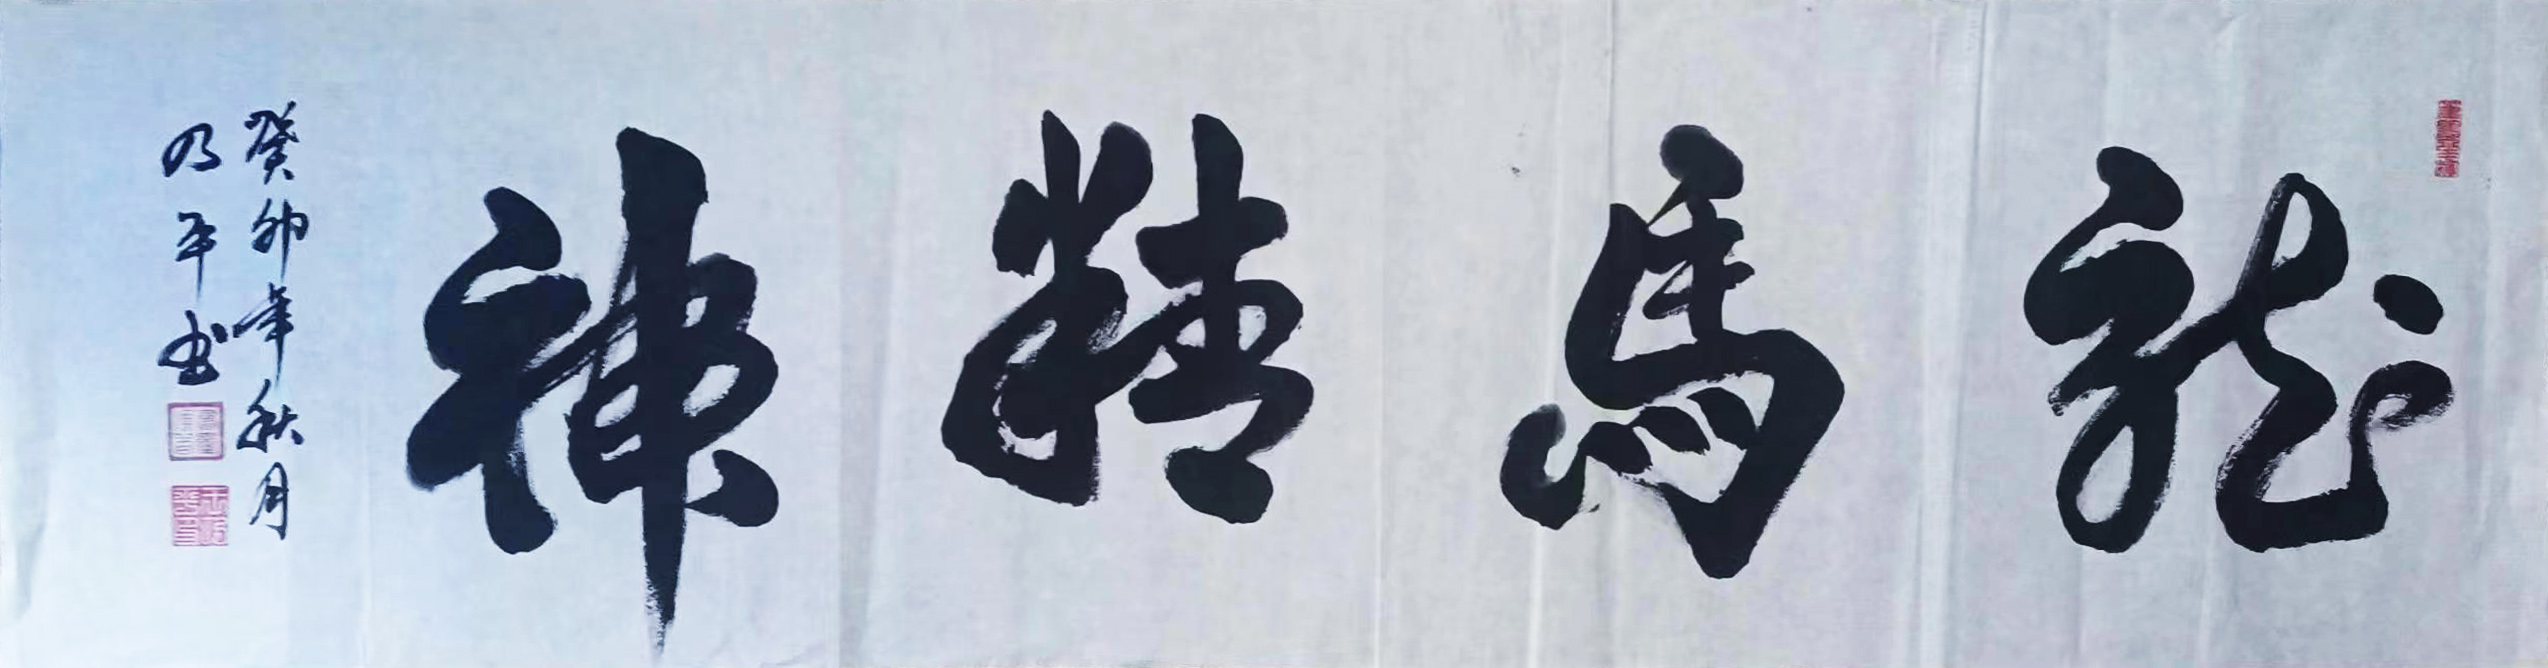 龍馬精神
癸卯年秋月
乃平书